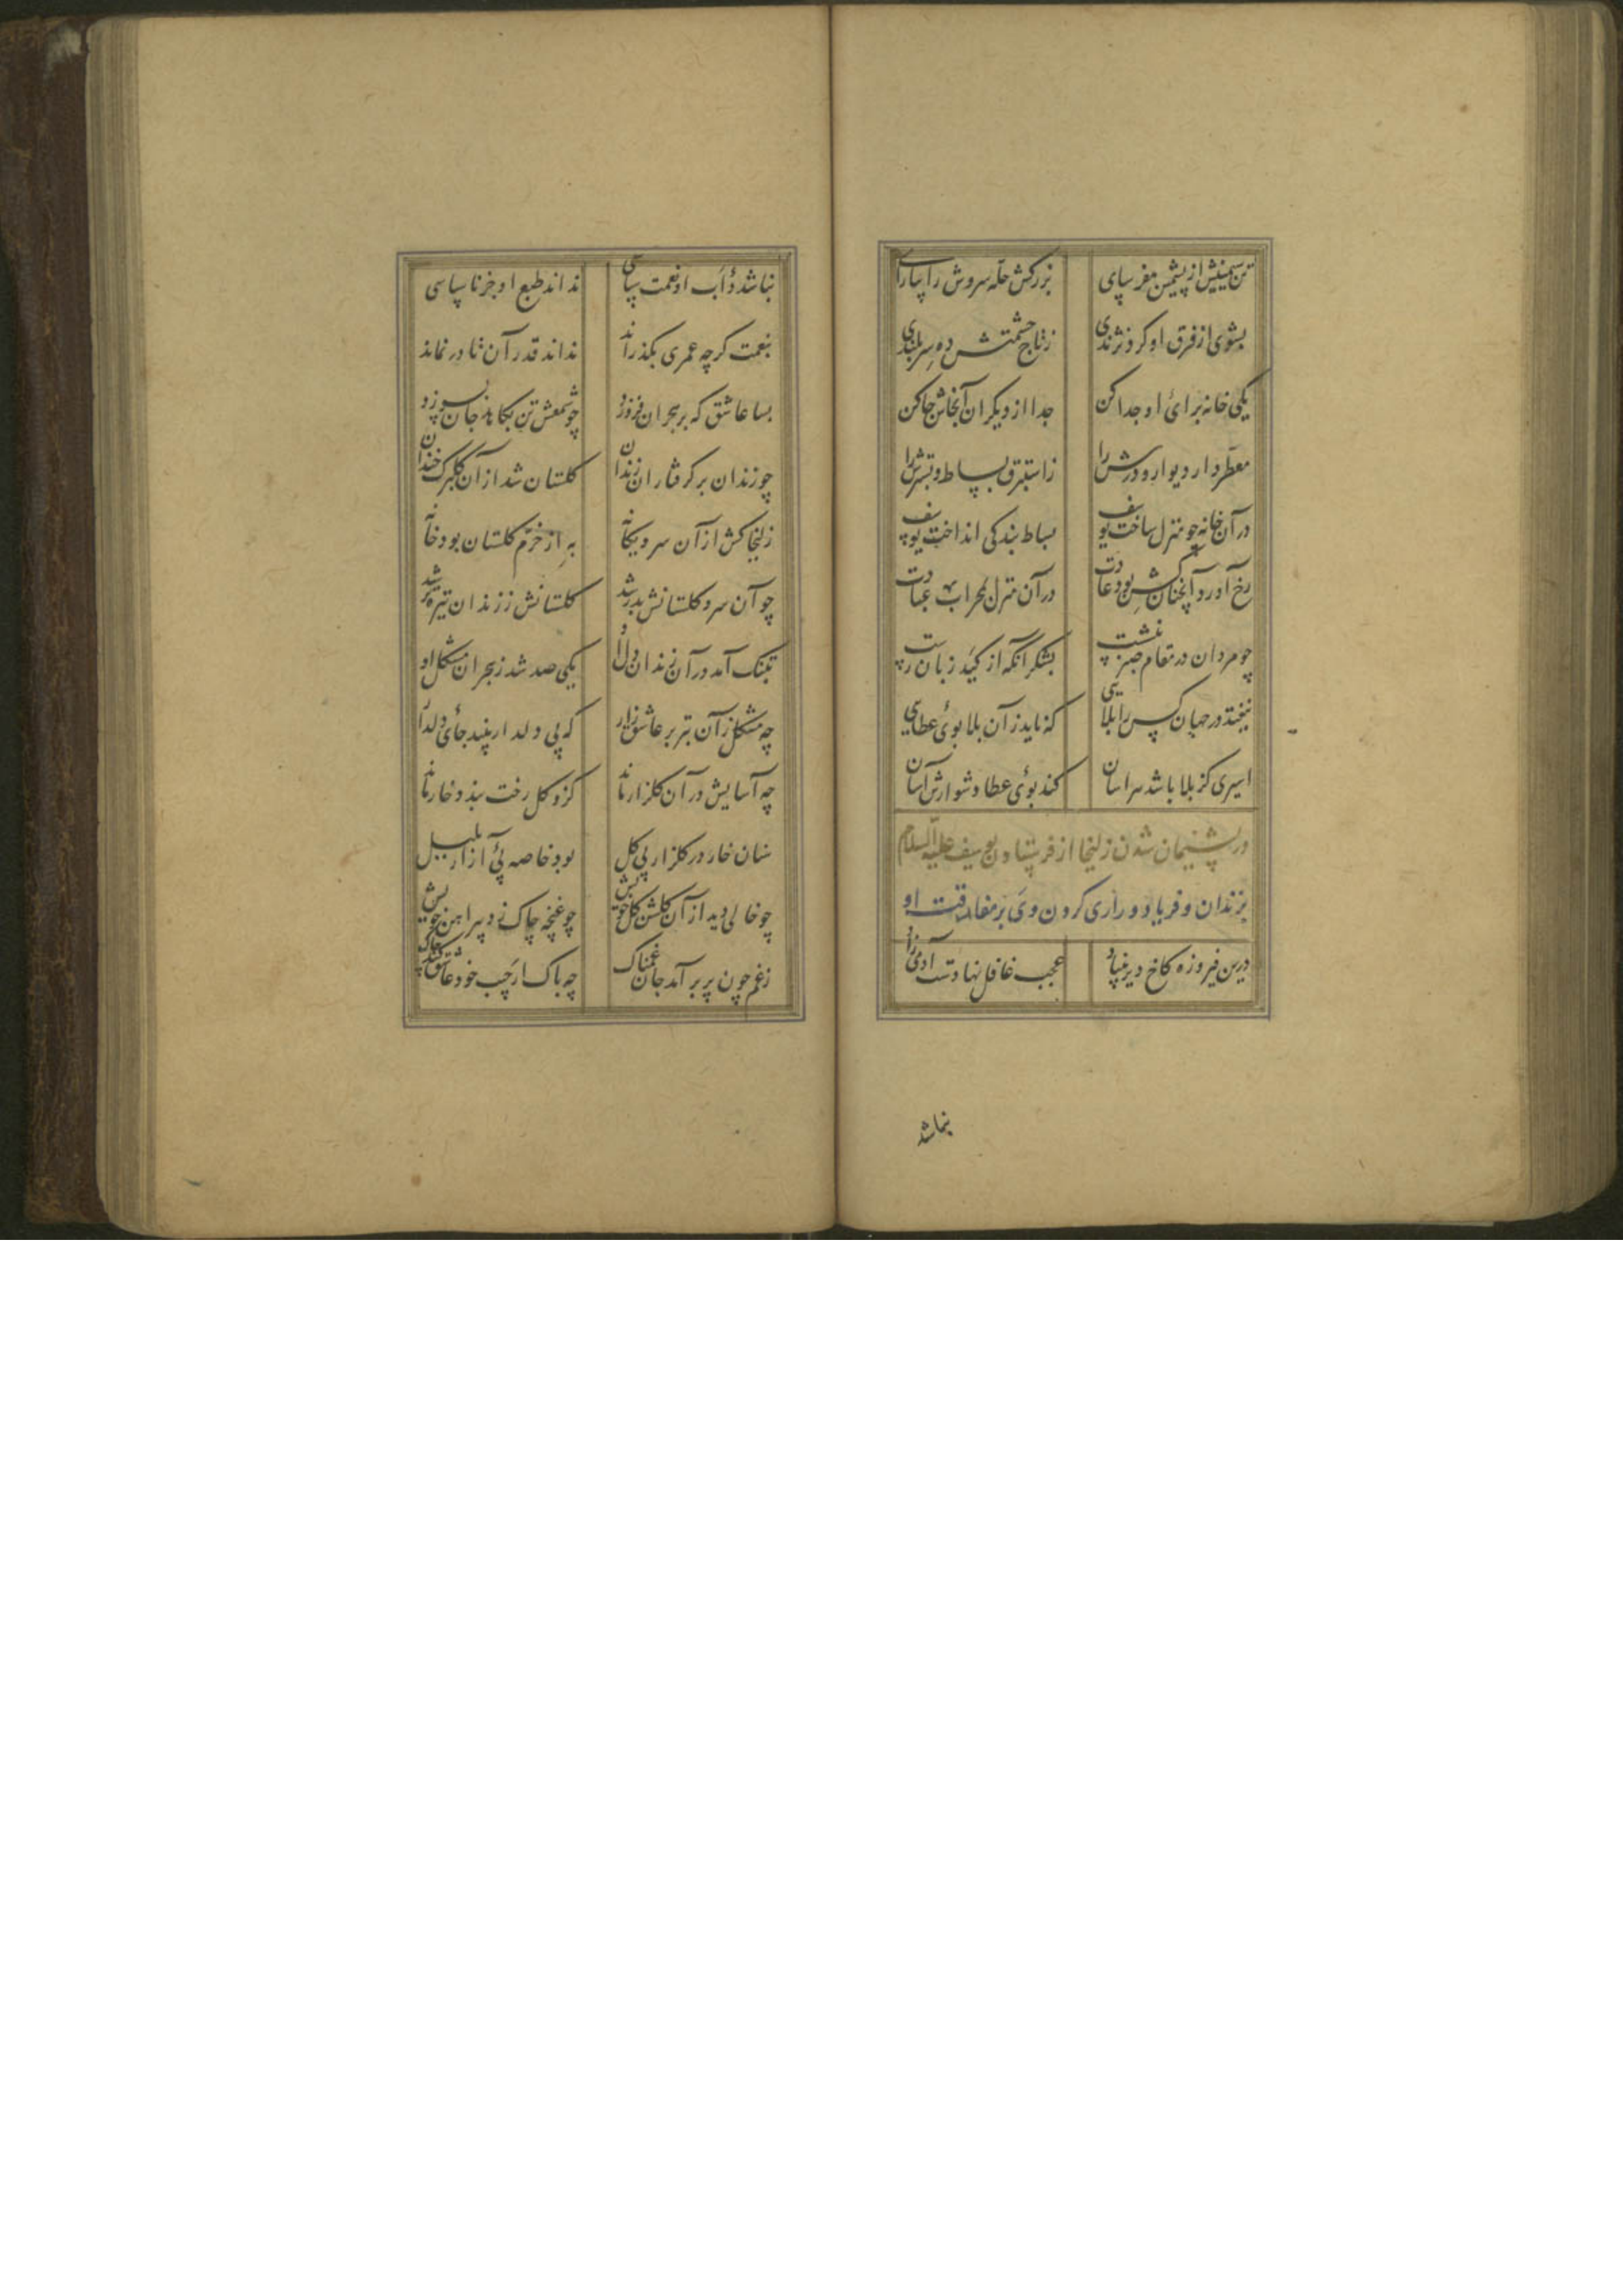 تن سیمینش از پشمین مفرسای بزرکش حله سروش را بیارای
بشوی از فرق او کرد نژندی ز تاج حشمتش ده سربلندی
یکی خانه برای او جدا کن جدا از دیکران آنجاش جا کن
معطر دار دیوار و درش را ز استبرق بساط و بسترش را
در آن خانه چو منزل ساخت یوسف بساط بندکی انداخت یوسف
رخ آورد آنچنان کش بود عادت در آن منزل بمحراب عبادت
چو مردان در مقام صبر بنشست بشکر آنکه از کید زنان رست
نیفتد در جهان کس را بلایی که ناید زآن بلا بوی عطایی
اسیری کز بلا باشد هراسان کند بوی عطا دشوارش آسان
در پشیمان شدن زلیخا از فرستادن یوسف علیه السلام
بزندان و فریاد و زاری کردن وی بر مفارقت او
درین فیروزه کاخ دیر بنیاد عجب غافل نهادست آدمی زاد
نباشد
نباشد دأب او نعمت سپاسی نداند طبع او جز ناسپاسی
بنعمت کرچه عمری بکذراند نداند قدر آن تا در نماند
بسا عاشق که بر هجران فروزد چو شمعش تن بکاهد جان بسوزد
چو زندان بر کرفتاران زندان کلستان شد از آن کلبرک خندان
زلیخا کش از آن سرو یکانه به از خرم کلستان بود خانه
چو آن سرو کلستانش بدر شد کلستانش ز زندان تیره تر شد
بتنک آمد در آن زندان دل او یکی صد شد ز هجران مشکل او
چه مشکل زآن بتر بر عاشق زار که بی دلدار بیند جای دلدار
چه آسایش در آن کلزار ماند کزو کل رخت بندد خار ماند
سنان خار در کلزار بی کل بود خاصه پی آزار بلبل
چو خالی دید از آن کل کلشن خویش چو غنچه چاک زد پیراهن خویش
ز غم چون پر برآمد جان غمناک چه باک ار جیب خود عاشق کند چاک